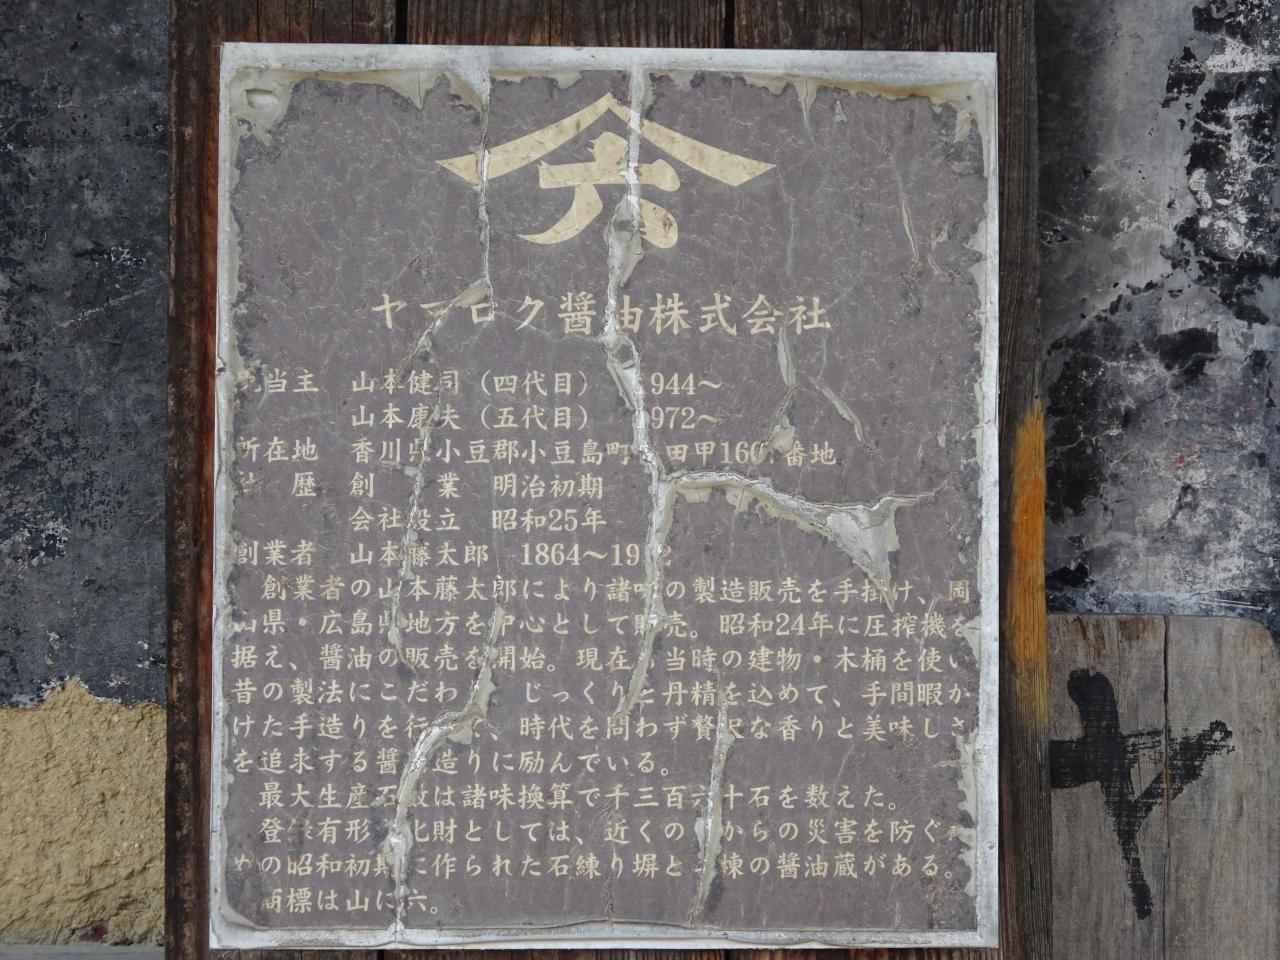 六
ヤマロク醤油株式会社
当主 山本健司（四代目） 944～
山本康夫（五代目） 972～
所在地 香川県小豆郡小豆島町 田甲160 番地
歴 創業 明治初期
会社設立 昭和25年
創業者 山本藤太郎 1864～19 2
創業者の山本藤太郎により諸味の製造販売を手掛け、岡
山県・広島県地方を中心として販売。昭和24年に圧搾機を
据え、醤油の販売を開始。現在 当時の建物・木桶を使い
昔の製法にこだわ じっくりと丹精を込めて、手間暇か
けた手造りを行 、時代を問わず贅沢な香りと美味しさ
を追求する醤 造りに励んでいる。
最大生産石数は諸味換算で千三百六十石を数えた。
登録有形 化財としては、近くの からの災害を防ぐ
めの昭和初期に作られた石練り塀と 棟の醤油蔵がある。
商標は山に六。
ヤ